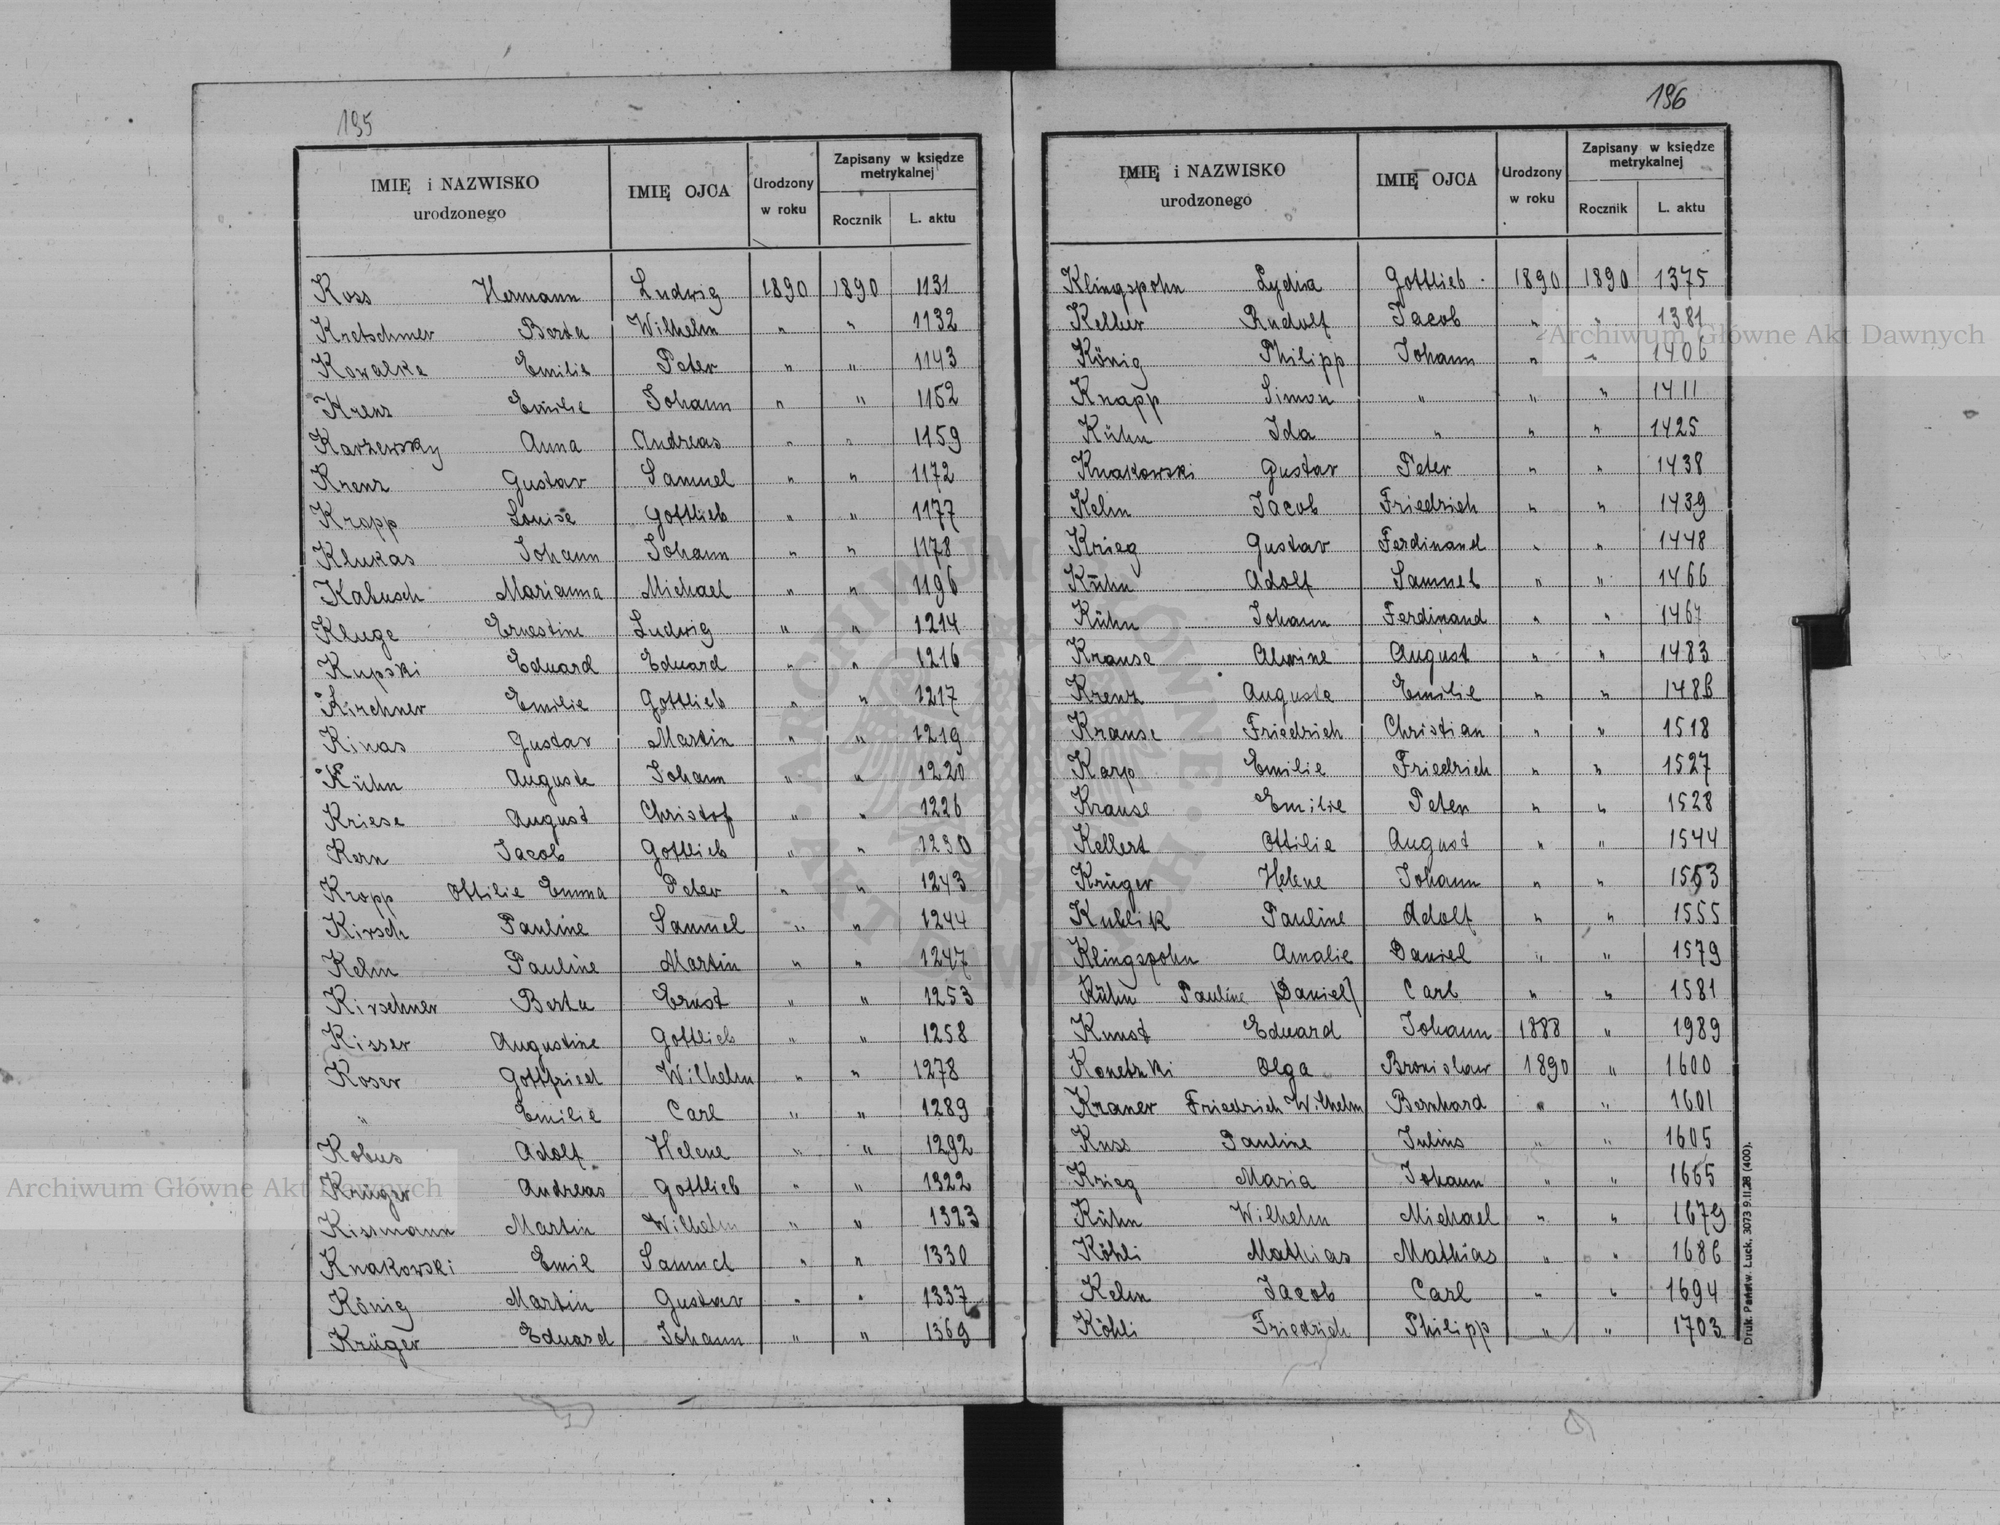 195
IMIĘ i NAZWISKO urodzonego IMIĘ OJCA Urodzony w roku Zapisany w księdze metrykalnej
Rocznik L. aktu
Koss Hermann Ludwig 1890 1890 1131
Kretschmer Berta Wilhelm " " 1132
Kowalke Emilie Peter " " 1143
Krenz Emilie Johann " " 1152
Karżewsky Anna Andreas " " 1159
Krenz Gustav Samuel " " 1172
Kropp Louise Gottlieb " " 1177
Klukas Johann Johann " " 1178
Kabusch Marianna Michael " " 1196
Kluge Ernestine Ludwig " " 1214
Kupski Eduard Eduard " " 1216
Kirchner Emilie Gottlieb " " 1217
Kinas Gustav Martin " " 1219
Kühn Auguste Johann " " 1220
Kriese August Christof " " 1226
Kern Jacob Gottlieb " " 1230
Kropp Ottilie Emma Peter " " 1243
Kirsch Pauline Samuel " " 1244
Kelm Pauline Martin " " 1247
Kirschner Berta Ernst " " 1253
Kisser Augustine Gottlieb " " 1258
Koser Gottfried Wilhelm " " 1278
" Emilie Carl " " 1289
Kobus Adolf Helene " " 1292
Krüger Andreas Gottlieb " " 1322
Kissmann Martin Wilhelm " " 1323
Knakowski Emil Samuel " " 1330
König Martin Gustav " " 1337
Krüger Eduard Johann " " 1369
196
IMIĘ i NAZWISKO urodzonego IMIĘ OJCA Urodzony w roku Zapisany w księdze metrykalnej
Rocznik L. aktu
Klingspohn Lydia Gottlieb 1890 1890 1375
Keller Rudolf Jacob " " 1381
König Philipp Johann " " 1406
Knapp Simon " " " 1411
Kühn Ida " " " 1425
Knakowski Gustav Peter " " 1438
Kelm Jacob Friedrich " " 1439
Krieg Gustav Ferdinand " " 1448
Kühn Adolf Samuel " " 1466
Kühn Johann Ferdinand " " 1467
Krause Alwine August " " 1483
Krenz Auguste Emilie " " 1486
Krause Friedrich Christian " " 1518
Karp Emilie Friedrich " " 1527
Krause Emilie Peter " " 1528
Kellert Ottilie August " " 1544
Krüger Helene Johann " " 1553
Kublik Pauline Adolf " " 1555
Klingspohn Amalie Daniel " " 1579
Kühn Pauline (Daniel) Carl " " 1581
Kunst Eduard Johann 1888 " 1989
Konetzki Olga Bronislaw 1890 " 1600
Kraner Friedrich Wilhelm Bernhard " " 1601
Kuss Pauline Julius " " 1605
Krieg Maria Johann " " 1665
Kühn Wilhelm Michael " " 1679
Köhli Mathias Mathias " " 1686
Kelm Jacob Carl " " 1694
Köhli Friedrich Philipp " " 1703
Druk. Państw. Łuck, 3073 9.II.28 (400).
Archiwum Główne Akt Dawnych
Archiwum Główne Akt Dawnych
ARCHIWUM GŁÓWNE AKT DAWNYCH